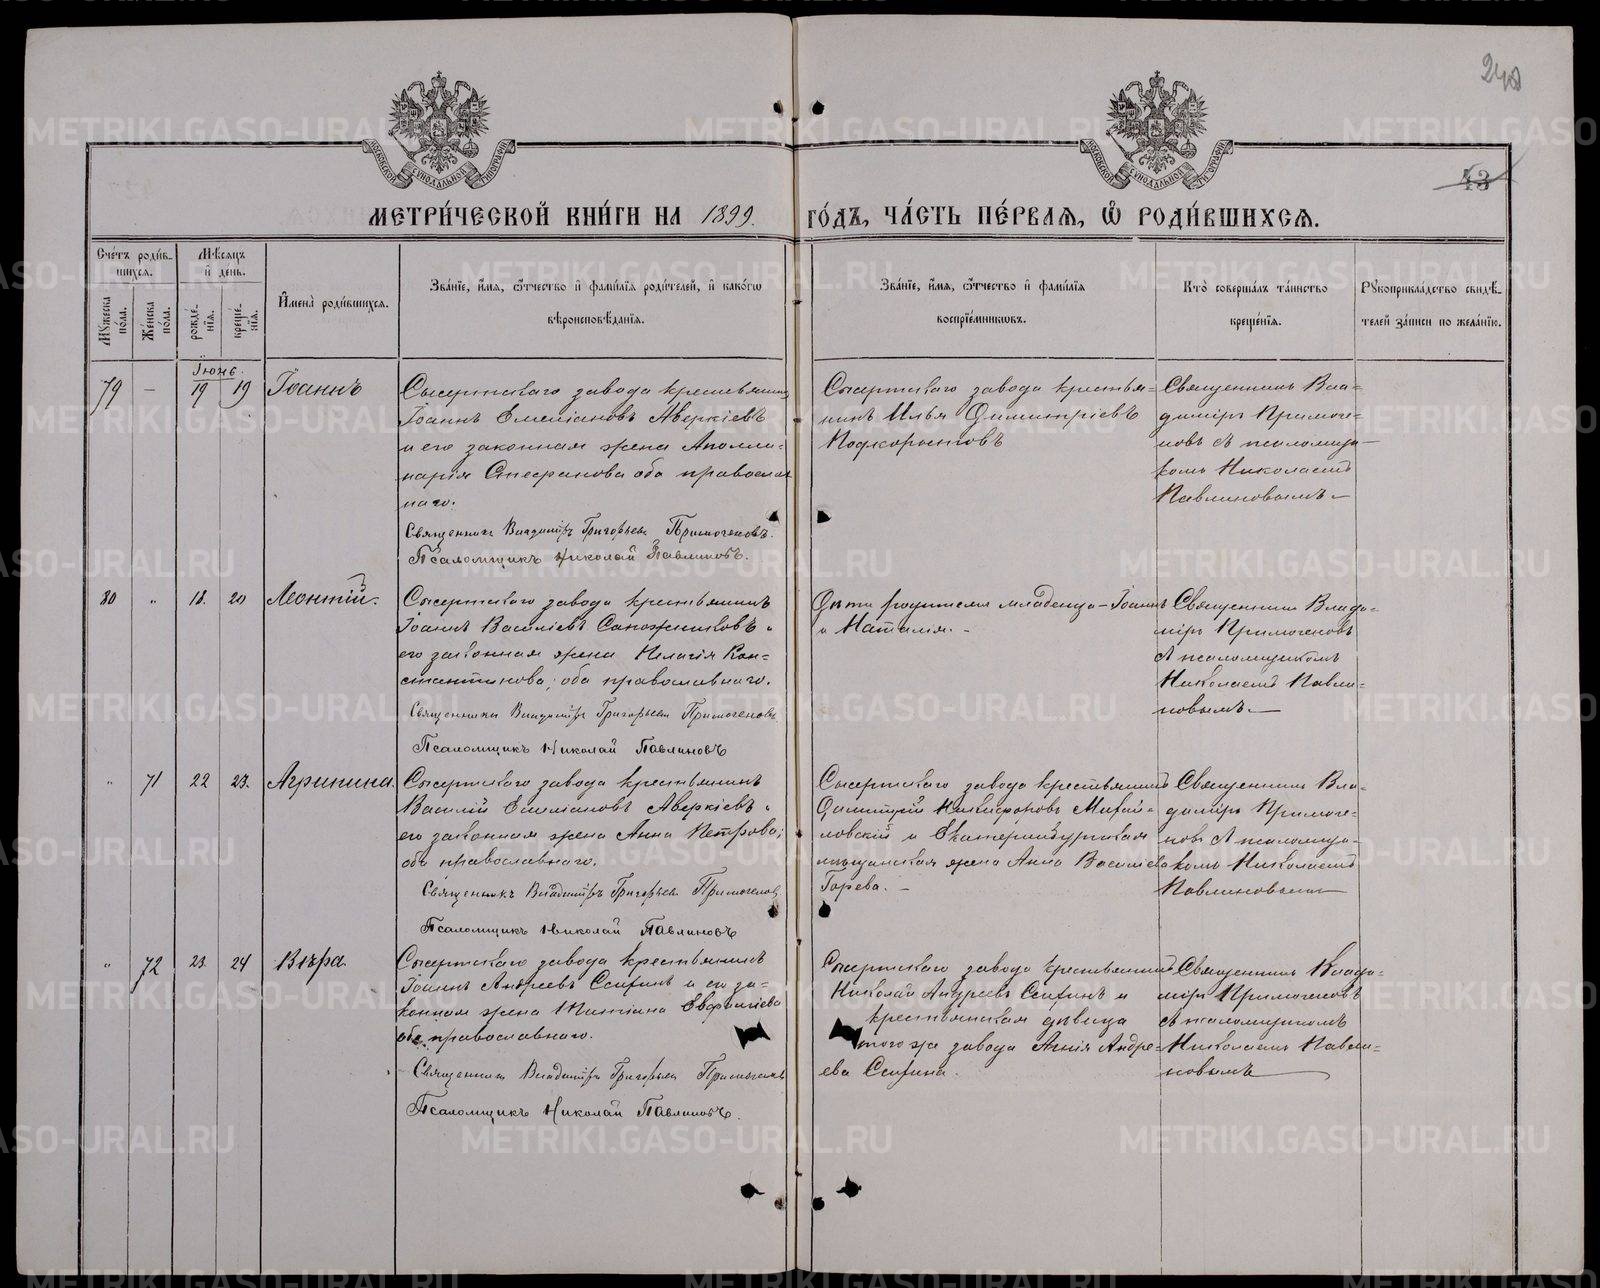 248
43
МОСКОВСКОЙ СѴНОДАЛЬНОЙ ТИПОГРАФІИ
МОСКОВСКОЙ СѴНОДАЛЬНОЙ ТИПОГРАФІИ
МЕТРИ́ЧЕСКОЙ КНИ́ГИ НА 1899. ГО́ДЪ, ЧА́СТЬ ПЕ́РВАЯ, Ѽ РОДИ́ВШИХСЯ.
Сче́тъ роди́в-
шихся.
Мѣсяцъ
и день.
Му́жеска
по́ла.
Же́нска
по́ла.
рожде́-
нія.
креще́-
нія.
Имена̀ роди́вшихся.
Зва́нїе, и́мя, ѻ́тчество и фами́лїя роди́телей, и како́гѡ
вѣроисповѣ́данїя.
Зва́нїе, и́мя, ѻ́тчество и фами́лїя
воспрїе́мниковъ.
Кто̀ соверша́лъ та́инство
креще́нїя.
Рукоприкла́дство свидѣ́-
телей за́писи по жела́нїю.
Іюнь.
79 — 19 19 Іоаннъ
Сысертскаго завода крестьянинъ
Іоаннъ Емеліановъ Аверкіевъ
и его законная жена Аполли-
нарія Стефанова оба православ
наго.
Священникъ Владиміръ Григорьевъ Примогеновъ.
Псаломщикъ Николай Павлиновъ.
Сысертскаго завода крестья-
нинъ Илья Димитріевъ
Подкорытовъ
Священникъ Вла-
диміръ Примоге-
новъ съ псаломщи-
комъ Николаемъ
Павлиновымъ
80 " 18. 20 Леонтій.
Сысертскаго завода крестьянинъ
Іоаннъ Василіевъ Сапожниковъ и
его законная жена Пелагія Кон-
стантинова; оба православнаго.
Священникъ Владиміръ Григорьевъ Примогеновъ
Псаломщикъ Николай Павлиновъ
Дѣти родителя младенца - Іоаннъ
и Наталія. -
Священникъ Влади-
міръ Примогеновъ
съ псаломщикомъ
Николаемъ Павли-
новымъ.
" 71 22 23. Агрипина.
Сысертскаго завода крестьянинъ
Василій Емеліановъ Аверкіевъ и
его законная жена Анна Петрова;
оба православнаго.
Священникъ Владиміръ Григорьевъ Примогеновъ
Псаломщикъ Николай Павлиновъ
Сысертскаго завода крестьянинъ
Димитрій Никифоровъ Михай-
ловскій и Екатеринбургская
мѣщанская жена Анна Василіева
Горева. -
Священникъ Вла-
диміръ Примоге-
новъ съ псаломщи-
комъ Николаемъ
Павлиновымъ
" 72 23 24 Вѣра
Сысертскаго завода крестьянинъ
Іоаннъ Андреевъ и его за-
конная жена Татіана Евфиміева
оба православнаго.
Священникъ Владиміръ Григорьевъ Примогеновъ
Псаломщикъ Николай Павлиновъ.
Сысертскаго завода крестьянинъ
Николай Андреевъ и
крестьянская дѣвица
того же завода Агнія Андре-
ева
Священникъ Влади-
міръ Примогеновъ
съ псаломщикомъ
Николаемъ Павли-
новымъ
METRIKI.GASO-URAL.RU